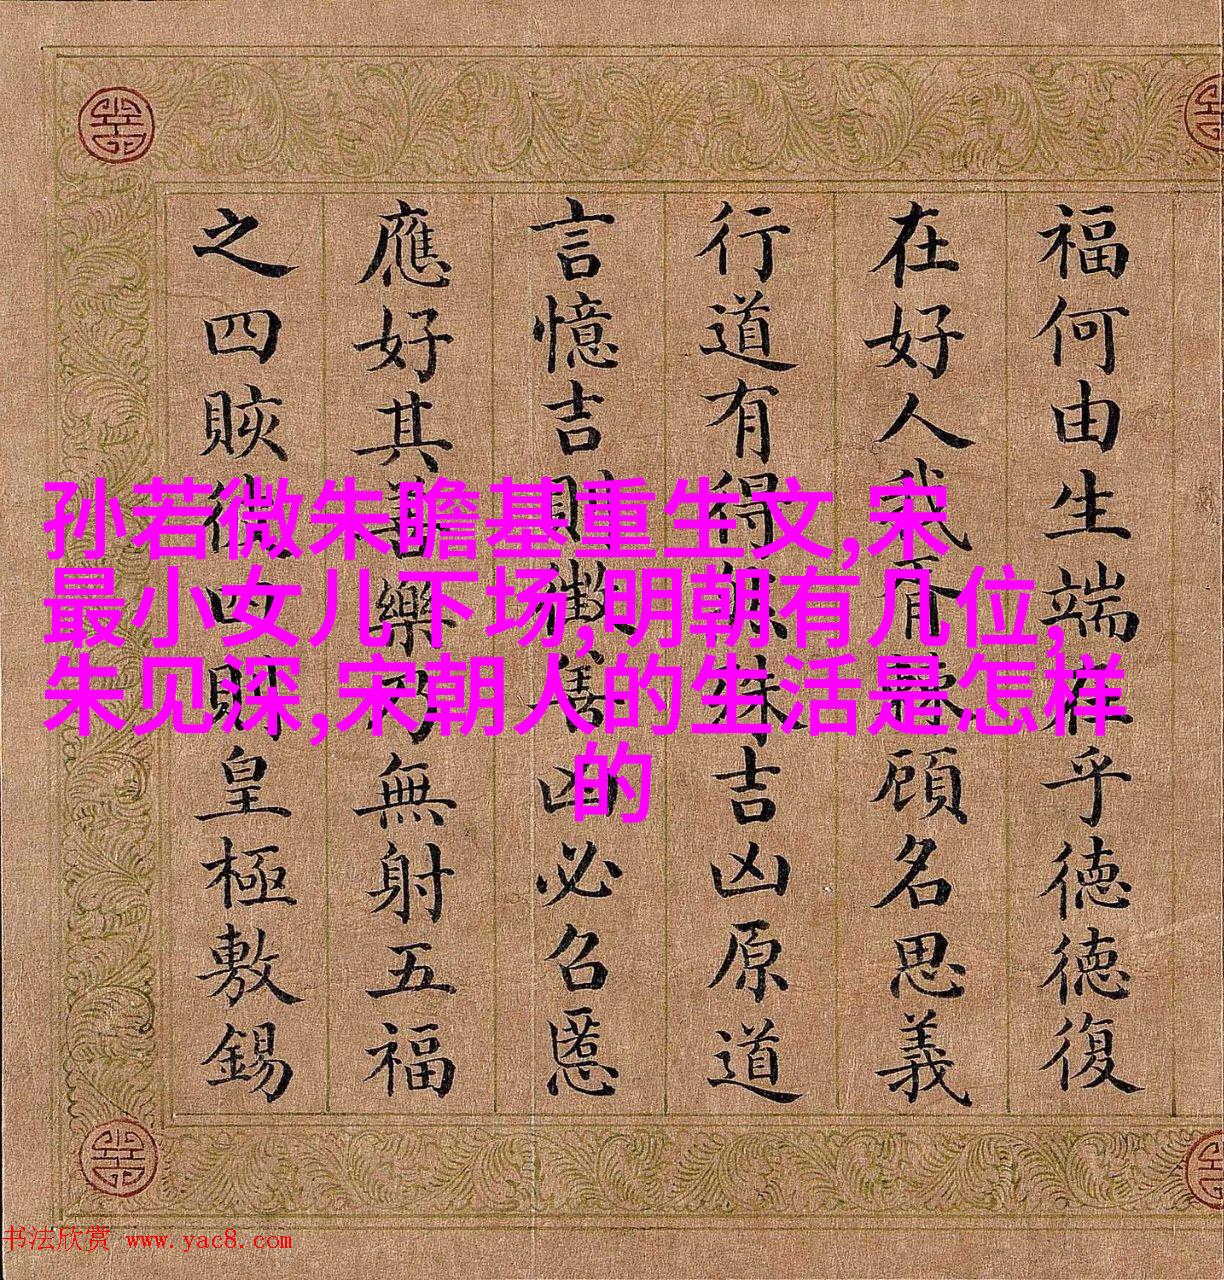 孙若微朱瞻基重生文,宋
最小女儿下场,明朝有几位,
朱见深,宋朝人的生活是怎样
的
福何由生端在乎徳徳復
在好人我顧名思義
行道有得殊吉凶原道
言憶吉則徵凶必召慝
應好其樂無射五福
之四賅四則皇極敷錫
书法欣赏 www.yac8.com